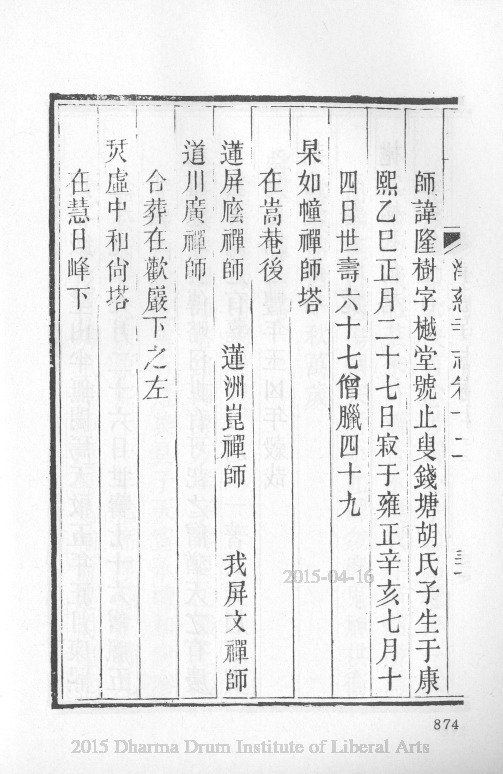 淨慈寺志卷十二
師諱隆樹字樾堂號止叟錢塘胡氏子生于康
熙乙巳正月二十七日寂于雍正辛亥七月十
四日世壽六十七僧臘四十九
杲如幢禪師塔
在嵩菴後
蓮屏廕禪師 蓮洲崑禪師 我屏文禪師
道川廣禪師
合葬在歡巖下之左
炗虛中和尙塔
在慧日峰下
2015-04-16
874
2015 Dharma Drum Institute of Liberal Arts